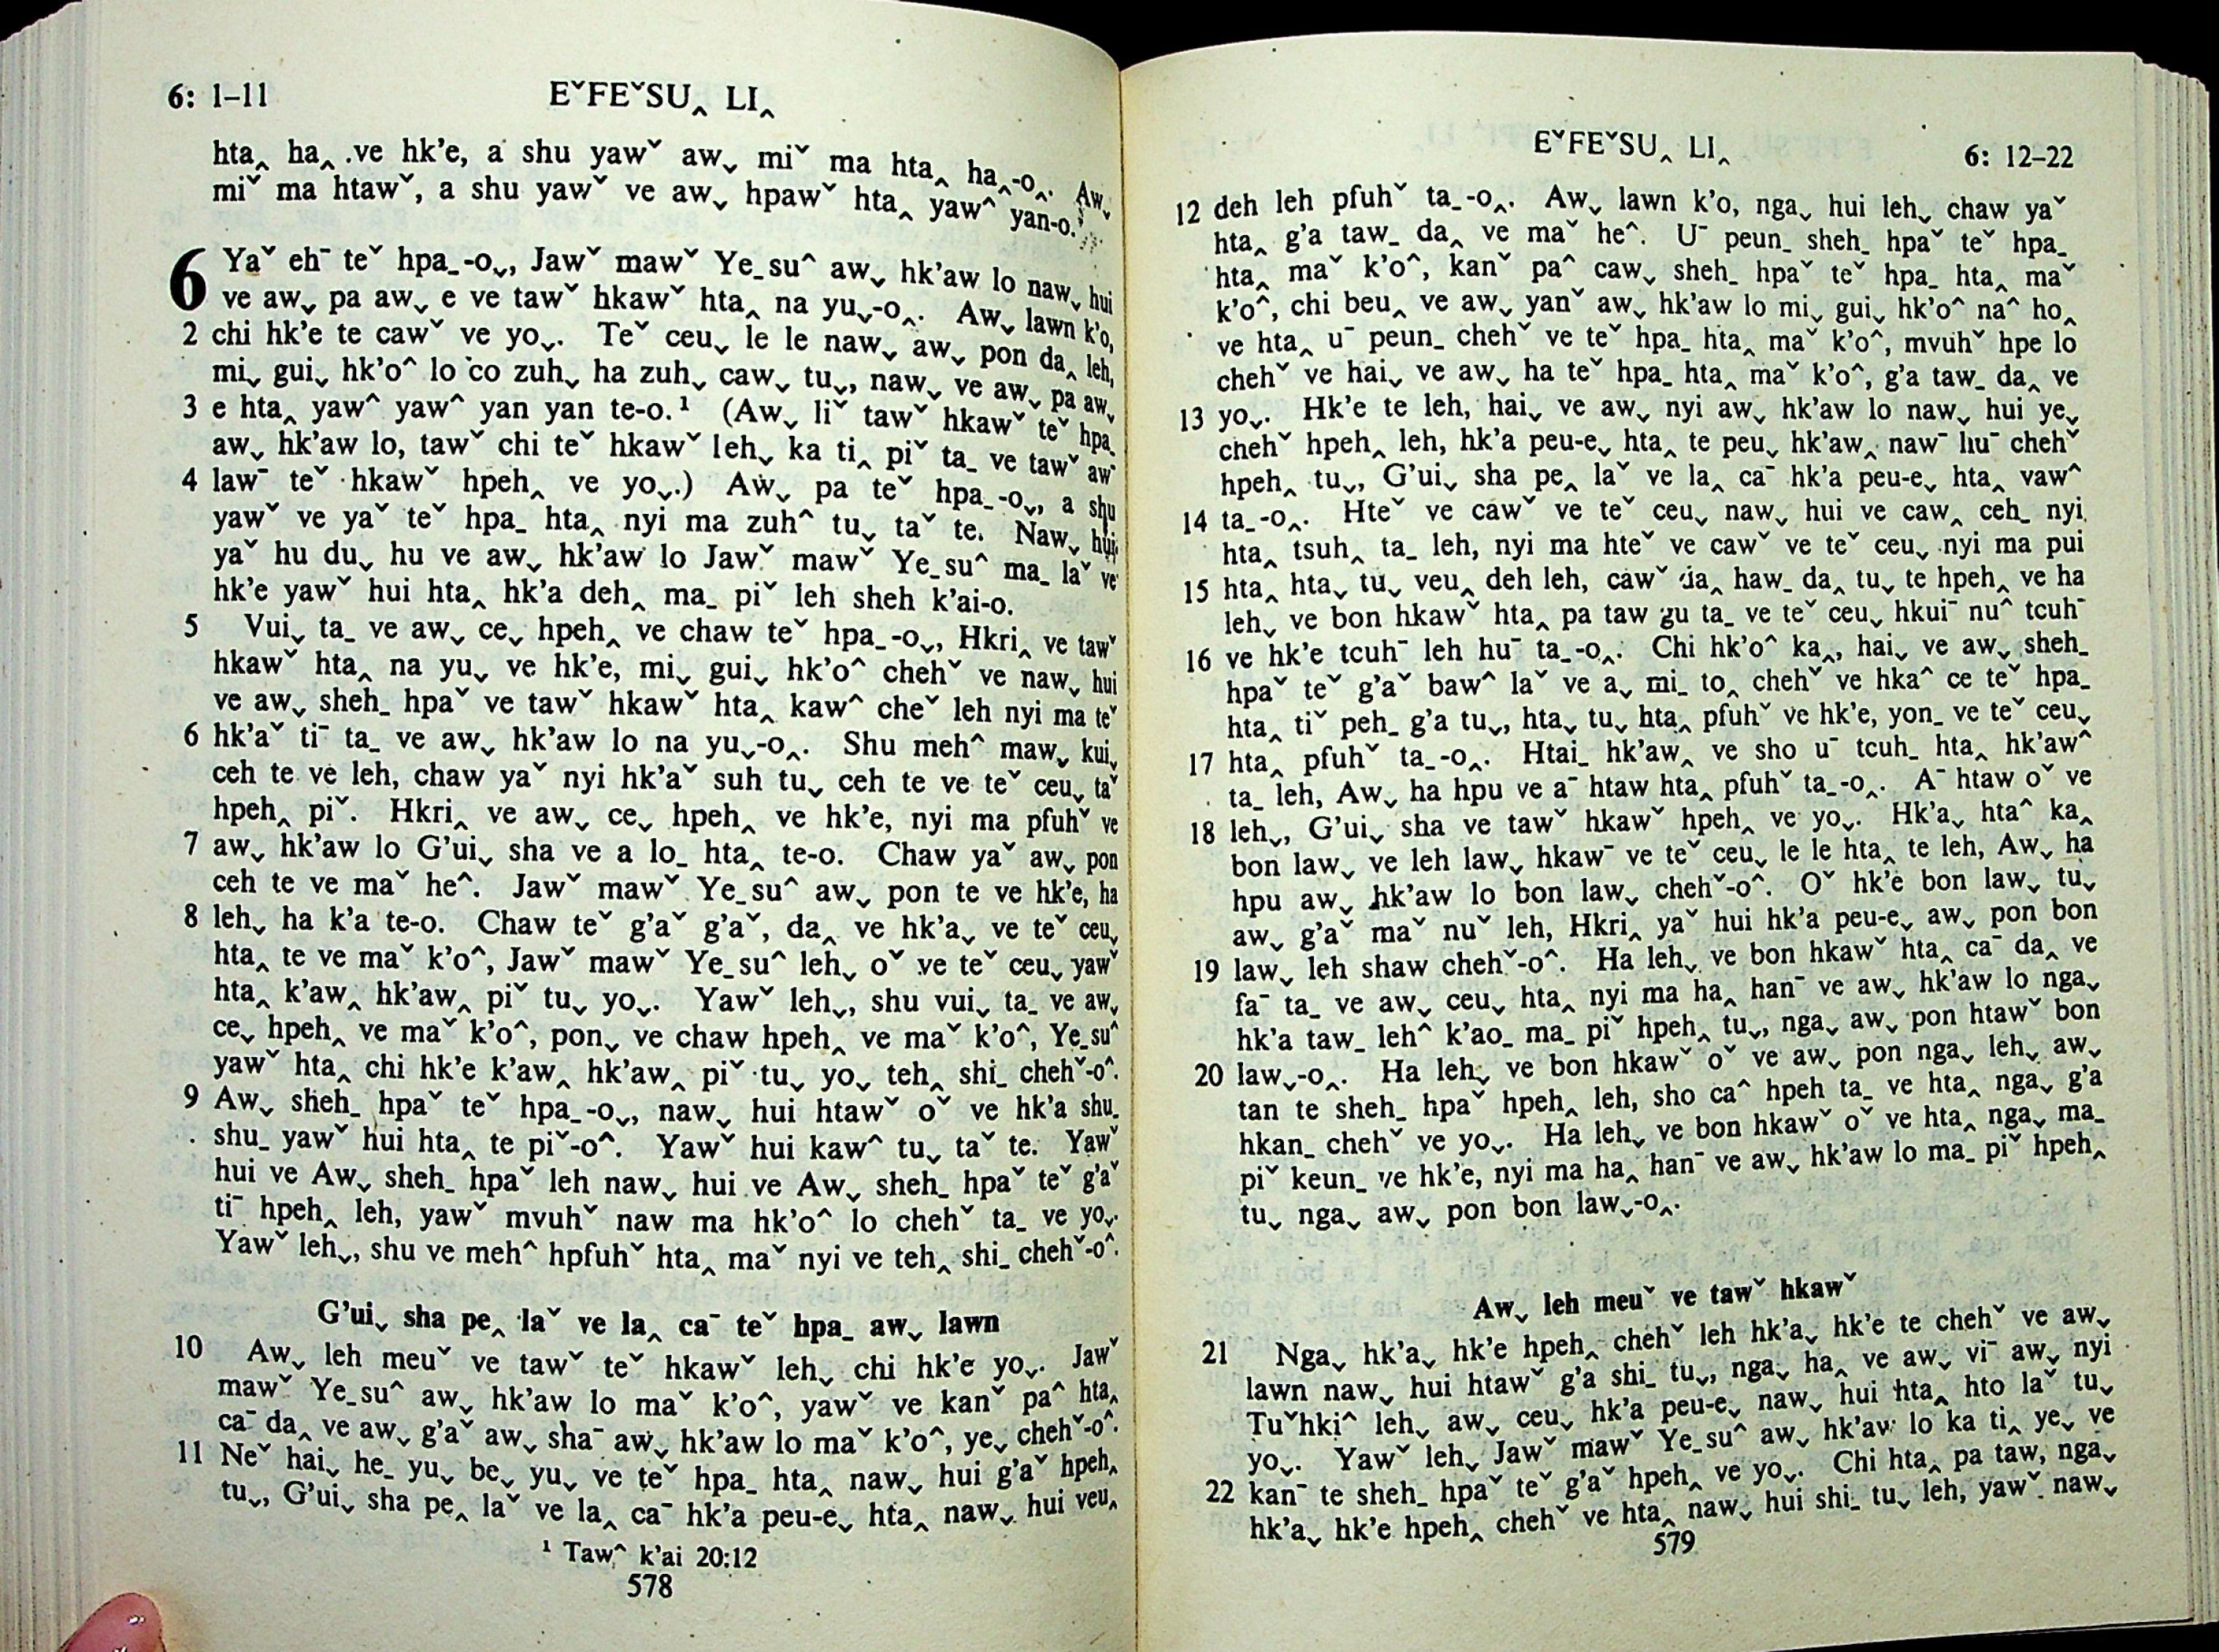 6: 1–11
EˇFEˇSU‸ LI‸
hta‸ ha‸ ve hk’e, a shu yawˇ aw⌄ miˇ ma hta‸ ha‸-o‸. Aw⌄
miˇ ma htawˇ, a shu yawˇ ve aw⌄ hpawˇ hta‸ yaw^ yan-o.
6 Yaˇ ehˉ teˇ hpa_-o⌄, Jawˇ mawˇ Ye_su^ aw⌄ hk’aw lo naw⌄ hui
ve aw⌄ pa aw⌄ e ve tawˇ hkawˇ hta‸ na yu⌄-o‸. Aw⌄ lawn k’o,
2 chi hk’e te cawˇ ve yo⌄. Teˇ ceu⌄ le le naw⌄ aw⌄ pon da‸ leh,
mi⌄ gui⌄ hk’o^ lo co zuh⌄ ha zuh⌄ caw⌄ tu⌄, naw⌄ ve aw⌄ pa aw⌄
3 e hta‸ yaw^ yaw^ yan yan te-o.¹ (Aw⌄ liˇ tawˇ hkawˇ teˇ hpa_
aw⌄ hk’aw lo, tawˇ chi teˇ hkawˇ leh⌄ ka ti‸ piˇ ta_ ve tawˇ awˉ
4 lawˉ teˇ hkawˇ hpeh‸ ve yo⌄.) Aw⌄ pa teˇ hpa_-o⌄, a shu
yawˇ ve yaˇ teˇ hpa_ hta‸ nyi ma zuh^ tu⌄ taˇ te. Naw⌄ hui
yaˇ hu du⌄ hu ve aw⌄ hk’aw lo Jawˇ mawˇ Ye_su^ ma_ laˇ ve
hk’e yawˇ hui hta‸ hk’a deh‸ ma_ piˇ leh sheh k’ai-o.
5 Vui⌄ ta_ ve aw⌄ ce⌄ hpeh‸ ve chaw teˇ hpa_-o⌄, Hkri‸ ve tawˇ
hkawˇ hta‸ na yu⌄ ve hk’e, mi⌄ gui⌄ hk’o^ chehˇ ve naw⌄ hui
ve aw⌄ sheh_ hpaˇ ve tawˇ hkawˇ hta‸ kaw^ cheˇ leh nyi ma teˇ
6 hk’aˇ tiˉ ta_ ve aw⌄ hk’aw lo na yu⌄-o‸. Shu meh^ maw⌄ kui⌄
ceh te ve leh, chaw yaˇ nyi hk’aˇ suh tu⌄ ceh te ve teˇ ceu⌄ taˇ
hpeh‸ piˇ. Hkri‸ ve aw⌄ ce⌄ hpeh‸ ve hk’e, nyi ma pfuhˇ ve
7 aw⌄ hk’aw lo G’ui⌄ sha ve a lo_ hta‸ te-o. Chaw yaˇ aw⌄ pon
ceh te ve maˇ he^. Jawˇ mawˇ Ye_su^ aw⌄ pon te ve hk’e, ha
8 leh⌄ ha k’a te-o. Chaw teˇ g’aˇ g’aˇ, da‸ ve hk’a⌄ ve teˇ ceu⌄
hta‸ te ve maˇ k’o^, Jawˇ mawˇ Ye_su^ leh⌄ oˇ ve teˇ ceu⌄ yawˇ
hta‸ k’aw‸ hk’aw‸ piˇ tu⌄ yo⌄. Yawˇ leh⌄, shu vui⌄ ta_ ve aw⌄
ce⌄ hpeh‸ ve maˇ k’o^, pon⌄ ve chaw hpeh‸ ve maˇ k’o^, Ye_su^
yawˇ hta‸ chi hk’e k’aw‸ hk’aw‸ piˇ tu⌄ yo⌄ teh‸ shi_ chehˇ-o^.
9 Aw⌄ sheh_ hpaˇ teˇ hpa_-o⌄, naw⌄ hui htawˇ oˇ ve hk’a shu_
shu_ yawˇ hui hta‸ te piˇ-o^. Yawˇ hui kaw^ tu⌄ taˇ te. Yawˇ
hui ve Aw⌄ sheh_ hpaˇ leh naw⌄ hui ve Aw⌄ sheh_ hpaˇ teˇ g’aˇ
tiˉ hpeh‸ leh, yawˇ mvuhˇ naw ma hk’o^ lo chehˇ ta_ ve yo⌄.
Yawˇ leh⌄, shu ve meh^ hpfuhˇ hta‸ maˇ nyi ve teh‸ shi_ chehˇ-o^.
G’ui⌄ sha pe‸ laˇ ve la‸ caˉ teˇ hpa_ aw⌄ lawn
10 Aw⌄ leh meuˇ ve tawˇ teˇ hkawˇ leh⌄ chi hk’e yo⌄. Jawˇ
mawˇ Ye_su^ aw⌄ hk’aw lo maˇ k’o^, yawˇ ve kanˇ pa^ hta‸
caˉ da‸ ve aw⌄ g’aˇ aw⌄ shaˉ aw⌄ hk’aw lo maˇ k’o^, ye⌄ chehˇ-o^.
11 Neˇ hai⌄ he_ yu⌄ be⌄ yu⌄ ve teˇ hpa_ hta‸ naw⌄ hui g’aˇ hpeh‸
tu⌄, G’ui⌄ sha pe‸ laˇ ve la‸ caˉ hk’a peu-e⌄ hta‸ naw⌄ hui veu‸
¹ Taw^ k’ai 20:12
578
EˇFEˇSU‸ LI‸
6: 12–22
12 deh leh pfuhˇ ta_-o‸. Aw⌄ lawn k’o, nga⌄ hui leh⌄ chaw yaˇ
hta‸ g’a taw_ da‸ ve maˇ he^. Uˉ peun_ sheh_ hpaˇ teˇ hpa_
hta‸ maˇ k’o^, kanˇ pa^ caw⌄ sheh_ hpaˇ teˇ hpa_ hta‸ maˇ
k’o^, chi beu‸ ve aw⌄ yanˇ aw⌄ hk’aw lo mi⌄ gui⌄ hk’o^ na^ ho‸
ve hta‸ uˉ peun_ chehˇ ve teˇ hpa_ hta‸ maˇ k’o^, mvuhˇ hpe lo
chehˇ ve hai⌄ ve aw⌄ ha teˇ hpa_ hta‸ maˇ k’o^, g’a taw_ da‸ ve
13 yo⌄. Hk’e te leh, hai⌄ ve aw⌄ nyi aw⌄ hk’aw lo naw⌄ hui ye⌄
chehˇ hpeh‸ leh, hk’a peu-e⌄ hta‸ te peu⌄ hk’aw‸ nawˉ huˉ chehˇ
hpeh‸ tu⌄, G’ui⌄ sha pe‸ laˇ ve la‸ caˉ hk’a peu-e⌄ hta‸ vaw^
14 ta_-o‸. Hteˇ ve cawˇ ve teˇ ceu⌄ naw⌄ hui ve caw‸ ceh_ nyi⌄
hta‸ tsuh‸ ta_ leh, nyi ma hteˇ ve cawˇ ve teˇ ceu⌄ nyi ma pui
15 hta‸ hta⌄ tu⌄ veu‸ deh leh, cawˇ da‸ haw_ da‸ tu⌄ te hpeh‸ ve ha
leh⌄ ve bon hkawˇ hta‸ pa taw gu ta_ ve teˇ ceu⌄ hkuiˉ nu^ tcuhˉ
16 ve hk’e tcuhˉ leh huˉ ta_-o‸. Chi hk’o^ ka‸, hai⌄ ve aw⌄ sheh_
hpaˇ teˇ g’aˇ baw^ laˇ ve a⌄ mi_ to‸ chehˇ ve hka^ ce teˇ hpa_
hta‸ tiˇ peh_ g’a tu⌄, hta⌄ tu⌄ hta‸ pfuhˇ ve hk’e, yon_ ve teˇ ceu⌄
17 hta‸ pfuhˇ ta_-o‸. Htai_ hk’aw‸ ve sho uˉ tcuh_ hta‸ hk’aw^
ta_ leh, Aw⌄ ha hpu ve aˉ htaw hta‸ pfuhˇ ta_-o‸. Aˉ htaw oˇ ve
18 leh⌄, G’ui⌄ sha ve tawˇ hkawˇ hpeh‸ ve yo⌄. Hk’a⌄ hta^ ka‸
bon law⌄ ve leh law⌄ hkawˉ ve teˇ ceu⌄ le le hta‸ te leh, Aw⌄ ha
hpu aw⌄ hk’aw lo bon law⌄ chehˇ-o^. Oˇ hk’e bon law⌄ tu⌄
aw⌄ g’aˇ maˇ nuˇ leh, Hkri‸ yaˇ hui hk’a peu-e⌄ aw⌄ pon bon
19 law⌄ leh shaw chehˇ-o^. Ha leh⌄ ve bon hkawˇ hta‸ caˉ da‸ ve
faˉ ta_ ve aw⌄ ceu⌄ hta‸ nyi ma ha‸ hanˉ ve aw⌄ hk’aw lo nga⌄
hk’a taw_ leh^ k’ao_ ma_ piˇ hpeh‸ tu⌄, nga⌄ aw⌄ pon htawˇ bon
20 law⌄-o‸. Ha leh⌄ ve bon hkawˇ oˇ ve aw⌄ pon nga⌄ leh⌄ aw⌄
tan te sheh_ hpaˇ hpeh‸ leh, sho ca^ hpeh ta_ ve hta‸ nga⌄ g’a
hkan_ chehˇ ve yo⌄. Ha leh⌄ ve bon hkawˇ oˇ ve hta‸ nga⌄ ma_
piˇ keun_ ve hk’e, nyi ma ha‸ hanˉ ve aw⌄ hk’aw lo ma_ piˇ hpeh‸
tu⌄ nga⌄ aw⌄ pon bon law⌄-o‸.
Aw⌄ leh meuˇ ve tawˇ hkawˇ
21 Nga⌄ hk’a⌄ hk’e hpeh‸ chehˇ leh hk’a⌄ hk’e te chehˇ ve aw⌄
lawn naw⌄ hui htawˇ g’a shi_ tu⌄, nga⌄ ha‸ ve aw⌄ viˉ aw⌄ nyi
Tuˇhki^ leh⌄ aw⌄ ceu⌄ hk’a peu-e⌄ naw⌄ hui hta‸ hto laˇ tu⌄
yo⌄. Yawˇ leh⌄ Jawˇ mawˇ Ye_su^ aw⌄ hk’aw lo ka ti‸ ye⌄ ve
22 kanˉ te sheh_ hpaˇ teˇ g’aˇ hpeh‸ ve yo⌄. Chi hta‸ pa taw, nga⌄
hk’a⌄ hk’e hpeh‸ chehˇ ve hta‸ naw⌄ hui shi_ tu⌄ leh, yawˇ naw⌄
579